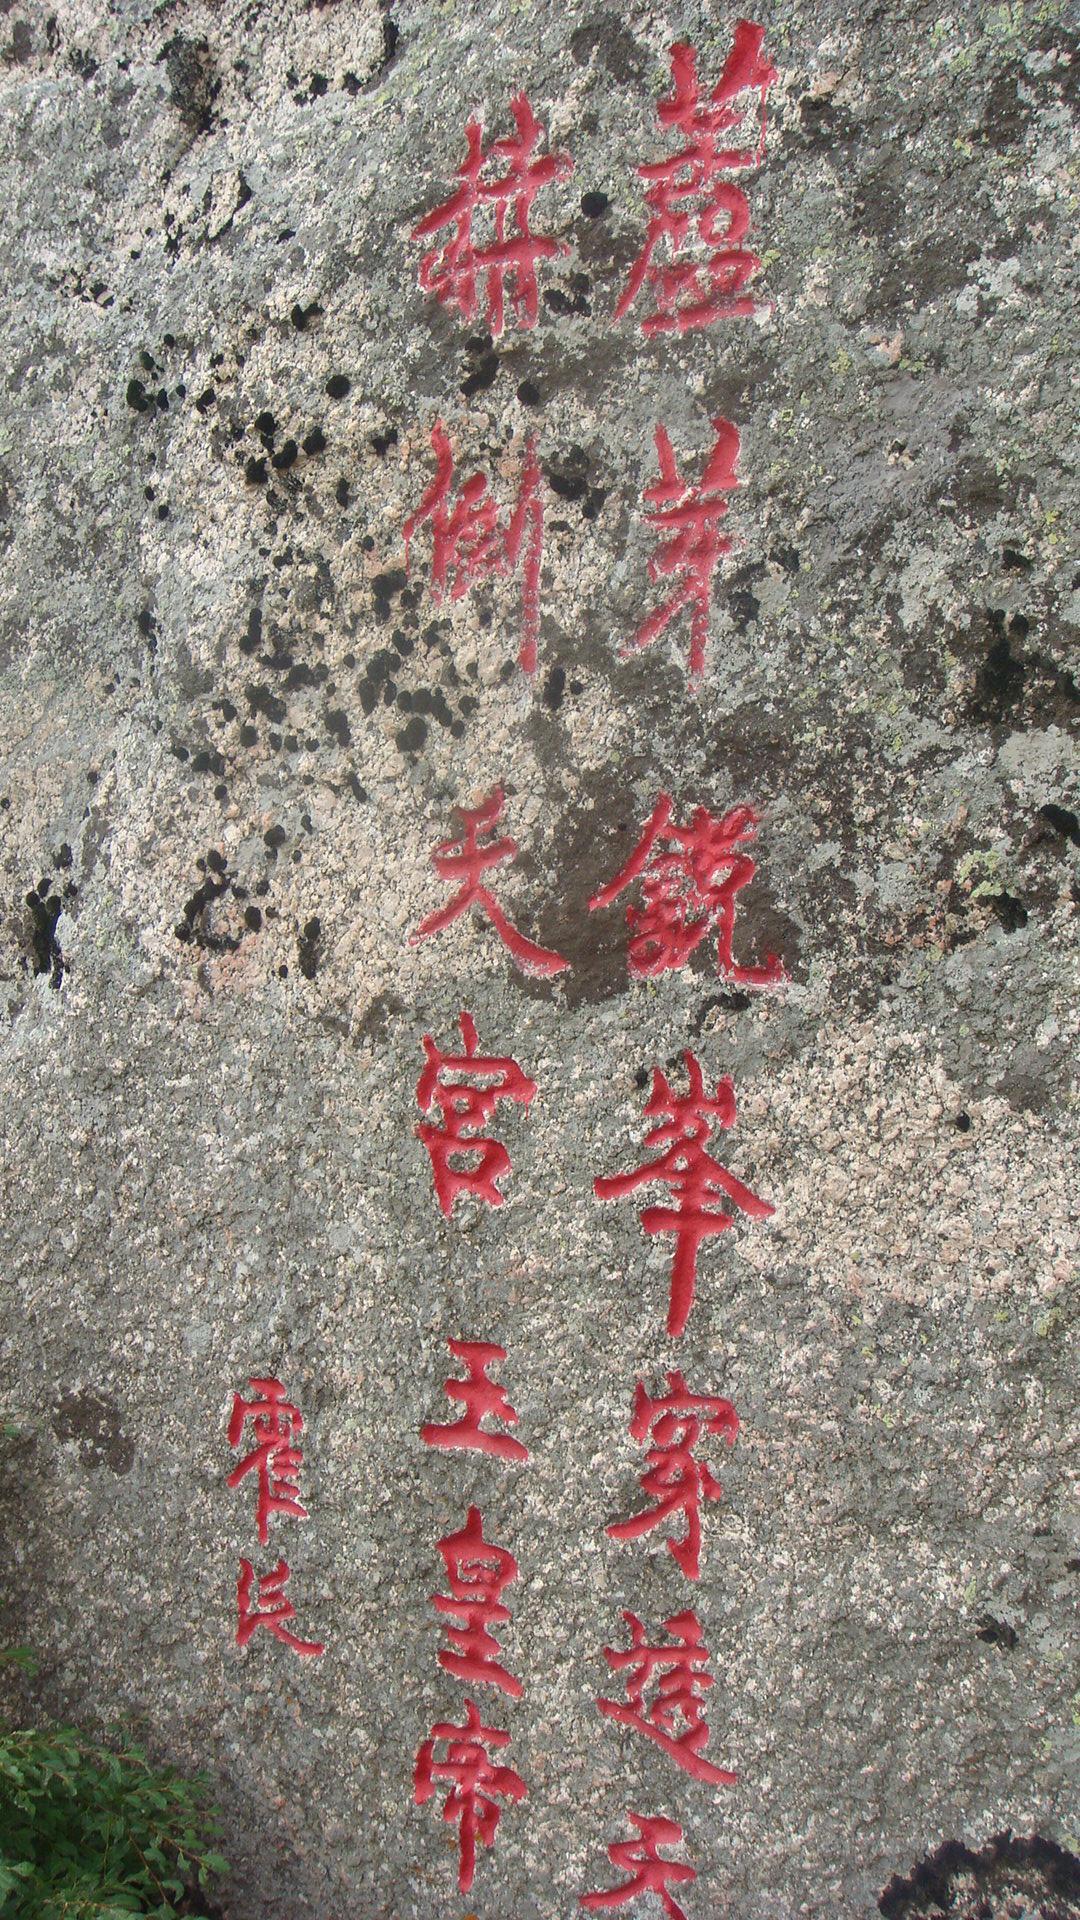 蘆芽銳峯穿透天
倒天宮王皇帝
霍